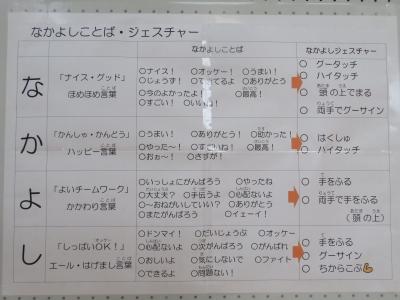 なかよしことば・ジェスチャー
なかよしことば
なかよしジェスチャー
な
「ナイス・グッド」
ほめほめ言葉
ことば
○ナイス！ ○オッケー！ ○うまい！
○じょうず！ ○できてるよ ○ありがとう
○今のよかったよ！ ○最高！
○すごい！ ○いいね！
○ グータッチ
○ ハイタッチ
○ 頭の上でまる
○ 両手でグーサイン
か
「かんしゃ・かんどう」
ハッピー言葉
ことば
○うまい！ ○ありがとう！ ○助かった！
○やった～！ ○すごいね！ ○最高！
○おぉ～！ ○さすが！
○ はくしゅ
○ ハイタッチ
よ
「よいチームワーク」
かかわり言葉
ことば
○いっしょにがんばろう ○やったね
○大丈夫？ ○手伝うよ ○心配ないよ
○～おねがいしていい？ ○ありがとう
○またがんばろう ○イェーイ！
○ 手をふる
○ 両手で手をふる
（頭の上）
し
「しっぱいOK！」
エール・はげまし言葉
ことば
○ドンマイ！ ○だいじょうぶ ○オッケー
○心配ないよ ○次がんばろう ○がんばれ
○おしいよ ○気にしないで ○ファイト
○できるよ ○問題ない！
○ 手をふる
○ グーサイン
○ ちからこぶ💪